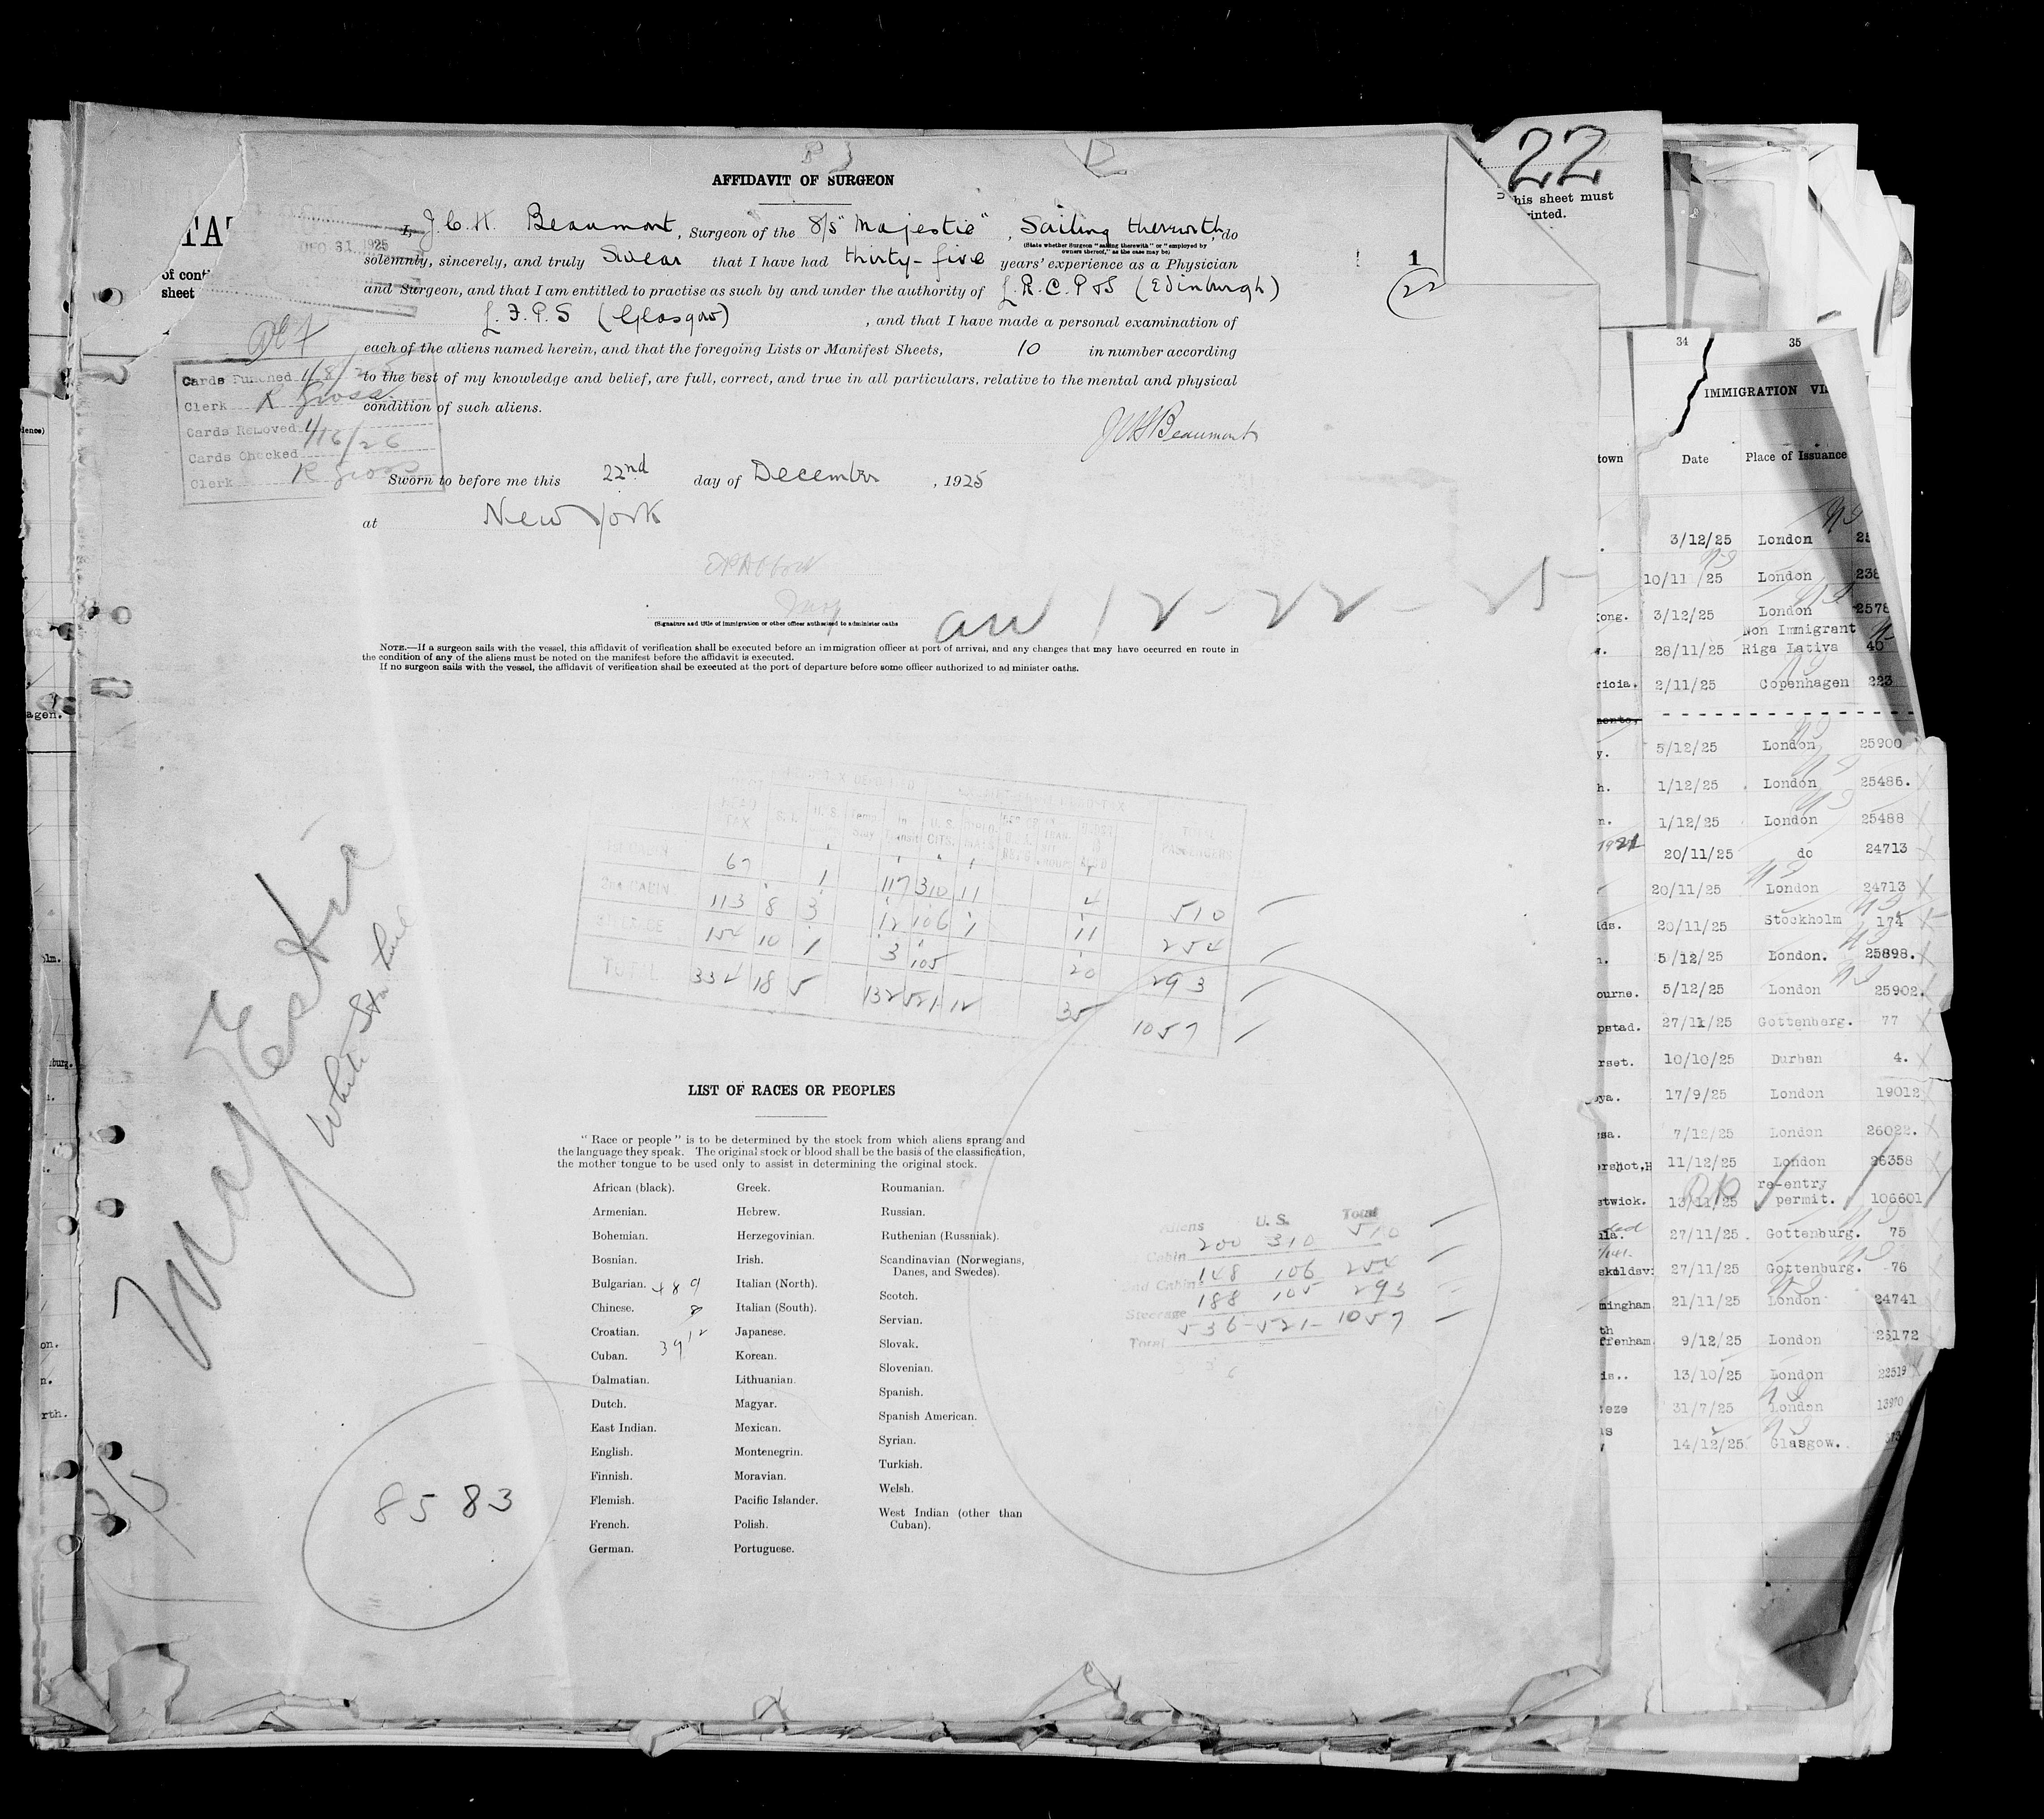 AFFIDAVIT OF SURGEON
22
his sheet must
inted.
I, J. C. H. Beaumont, Surgeon of the S/S "Majestic", Sailing therewith, do
(State whether Surgeon "sailing therewith" or "employed by
owners thereof," as the case may be)
DEC 31 1925
solemnly, sincerely, and truly Swear that I have had thirty-five years' experience as a Physician
1
and Surgeon, and that I am entitled to practise as such by and under the authority of L.R.C.P&S (Edinburgh)
22
L.F.P.S (Glasgow), and that I have made a personal examination of
of cont
sheet
each of the aliens named herein, and that the foregoing Lists or Manifest Sheets, 10 in number according
to the best of my knowledge and belief, are full, correct, and true in all particulars, relative to the mental and physical
condition of such aliens.
Beaumont
Cards Punched 1/8/2
Clerk R Gross.
Cards Removed
Cards Checked 1/16/26
Clerk R Gross
Sworn to before me this 22nd day of December, 1925
at New York
(Signature and title of immigration or other officer authorised to administer oaths
12-22-25
NOTE.—If a surgeon sails with the vessel, this affidavit of verification shall be executed before an immigration officer at port of arrival, and any changes that may have occurred en route in
the condition of any of the aliens must be noted on the manifest before the affidavit is executed.
If no surgeon sails with the vessel, the affidavit of verification shall be executed at the port of departure before some officer authorized to ad minister oaths.
Majestic
White Star Line
HEAD TAX S.I. U.S. Temp. Stay In Transit U.S. CITS. TOTAL PASSENGERS
1st CABIN 67 1 117 310 11 4 510
2nd CABIN 113 8 3 12 106 1 11 254
154 10 1 3 105 20 293
TOTAL 334 18 5 132 521 12 35 1057
LIST OF RACES OR PEOPLES
"Race or people" is to be determined by the stock from which aliens sprang and
the language they speak. The original stock or blood shall be the basis of the classification,
the mother tongue to be used only to assist in determining the original stock.
African (black).
Armenian.
Bohemian.
Bosnian.
Bulgarian.
Chinese.
Croatian.
Cuban.
Dalmatian.
Dutch.
East Indian.
English.
Finnish.
Flemish.
French.
German.
Greek.
Hebrew.
Herzegovinian.
Irish.
Italian (North).
Italian (South).
Japanese.
Korean.
Lithuanian.
Magyar.
Mexican.
Montenegrin.
Moravian.
Pacific Islander.
Polish.
Portuguese.
Roumanian.
Russian.
Ruthenian (Russniak).
Scandinavian (Norwegians,
Danes, and Swedes).
Scotch.
Servian.
Slovak.
Slovenian.
Spanish.
Spanish American.
Syrian.
Turkish.
Welsh.
West Indian (other than
Cuban).
8583
Aliens U. S. Total
Cabin 200 310 510
2nd Cabin 148 106 254
Steerage 188 105 293
Total 536 - 521 - 1057
34 35
IMMIGRATION VI
town Date Place of Issuance
3/12/25 London 25
10/11/25 London 238
kong. 3/12/25 London 2578
Non Immigrant
28/11/25 Riga Lativa 40
ricia. 2/11/25 Copenhagen 223
y. 5/12/25 London 25900
h. 1/12/25 London 25486.
n. 1/12/25 London 25488
20/11/25 do 24713
20/11/25 London 24713
lds. 20/11/25 Stockholm 174
n. 5/12/25 London. 25898.
ourne. 5/12/25 London 25902.
pstad. 27/11/25 Gottenberg. 77
rset. 10/10/25 Durban 4.
oya. 17/9/25 London 19012
sa. 7/12/25 London 26022.
ershot,H 11/12/25 London 26358
re-entry
stwick. 13/11/25 permit. 106601
27/11/25. Gottenburg. 75
27/11/25 Gottenburg. 76
mingham 21/11/25 London 24741
ffenham. 9/12/25 London 25172
is.. 13/10/25 London 22519
eze 31/7/25 London 13970
14/12/25 Glasgow.